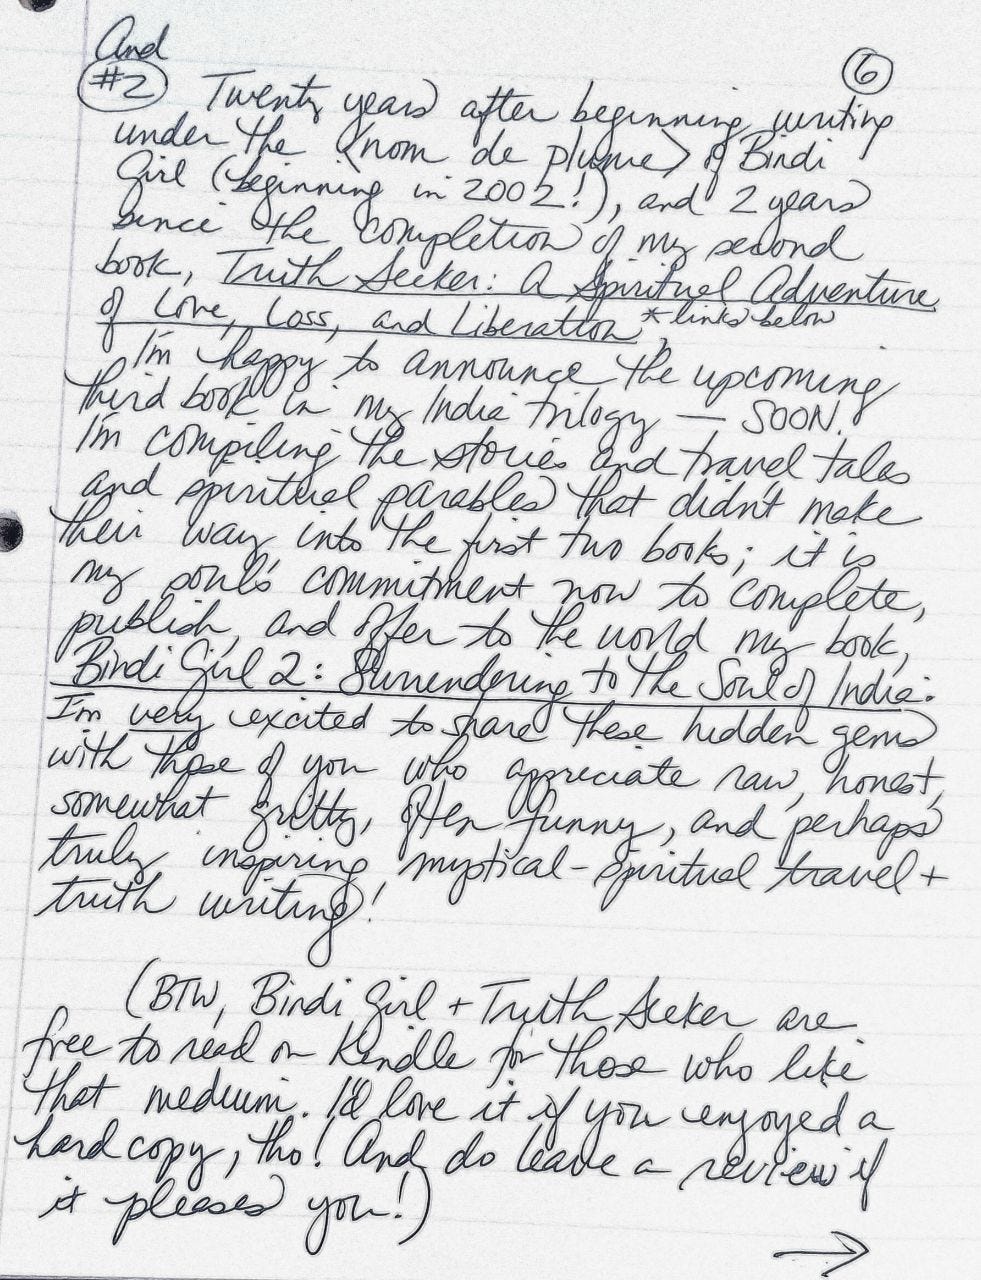 And
#2 6
Twenty years after beginning writing
under the (nom de plume) of Bindi
Girl (beginning in 2002!), and 2 years
since the completion of my second
book, Truth Seeker: A Spiritual Adventure
of Love, Loss, and Liberation, *links below
I'm happy to announce the upcoming
third book in my India trilogy — SOON.
I'm compiling the stories and travel tales
and spiritual parables that didn't make
their way into the first two books; it is
my soul's commitment now to complete,
publish, and offer to the world my book,
Bindi Girl 2: Surrendering to the Soul of India.
I'm very excited to share these hidden gems
with those of you who appreciate raw, honest,
somewhat gritty, often funny, and perhaps
truly inspiring mystical-spiritual travel +
truth writing!
(BTW, Bindi Girl + Truth Seeker are
free to read on Kindle for those who like
that medium. I'd love it if you enjoyed a
hard copy, tho! And do leave a review if
it pleases you!)
→